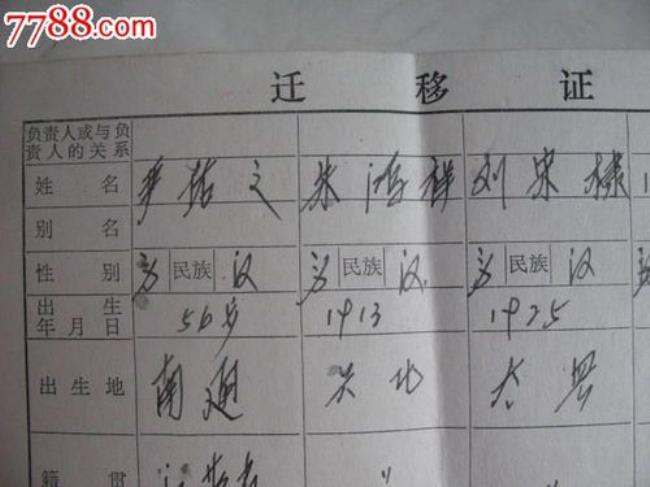 7788.com
迁移证
负责人或与负
责人的关系
姓名 朱鸿祥
别名
性别 民族 汉 民族 汉 民族 汉
出生
年月日 56岁 1913 1925
出生地 南通 兴化
籍贯 江苏 〃 〃